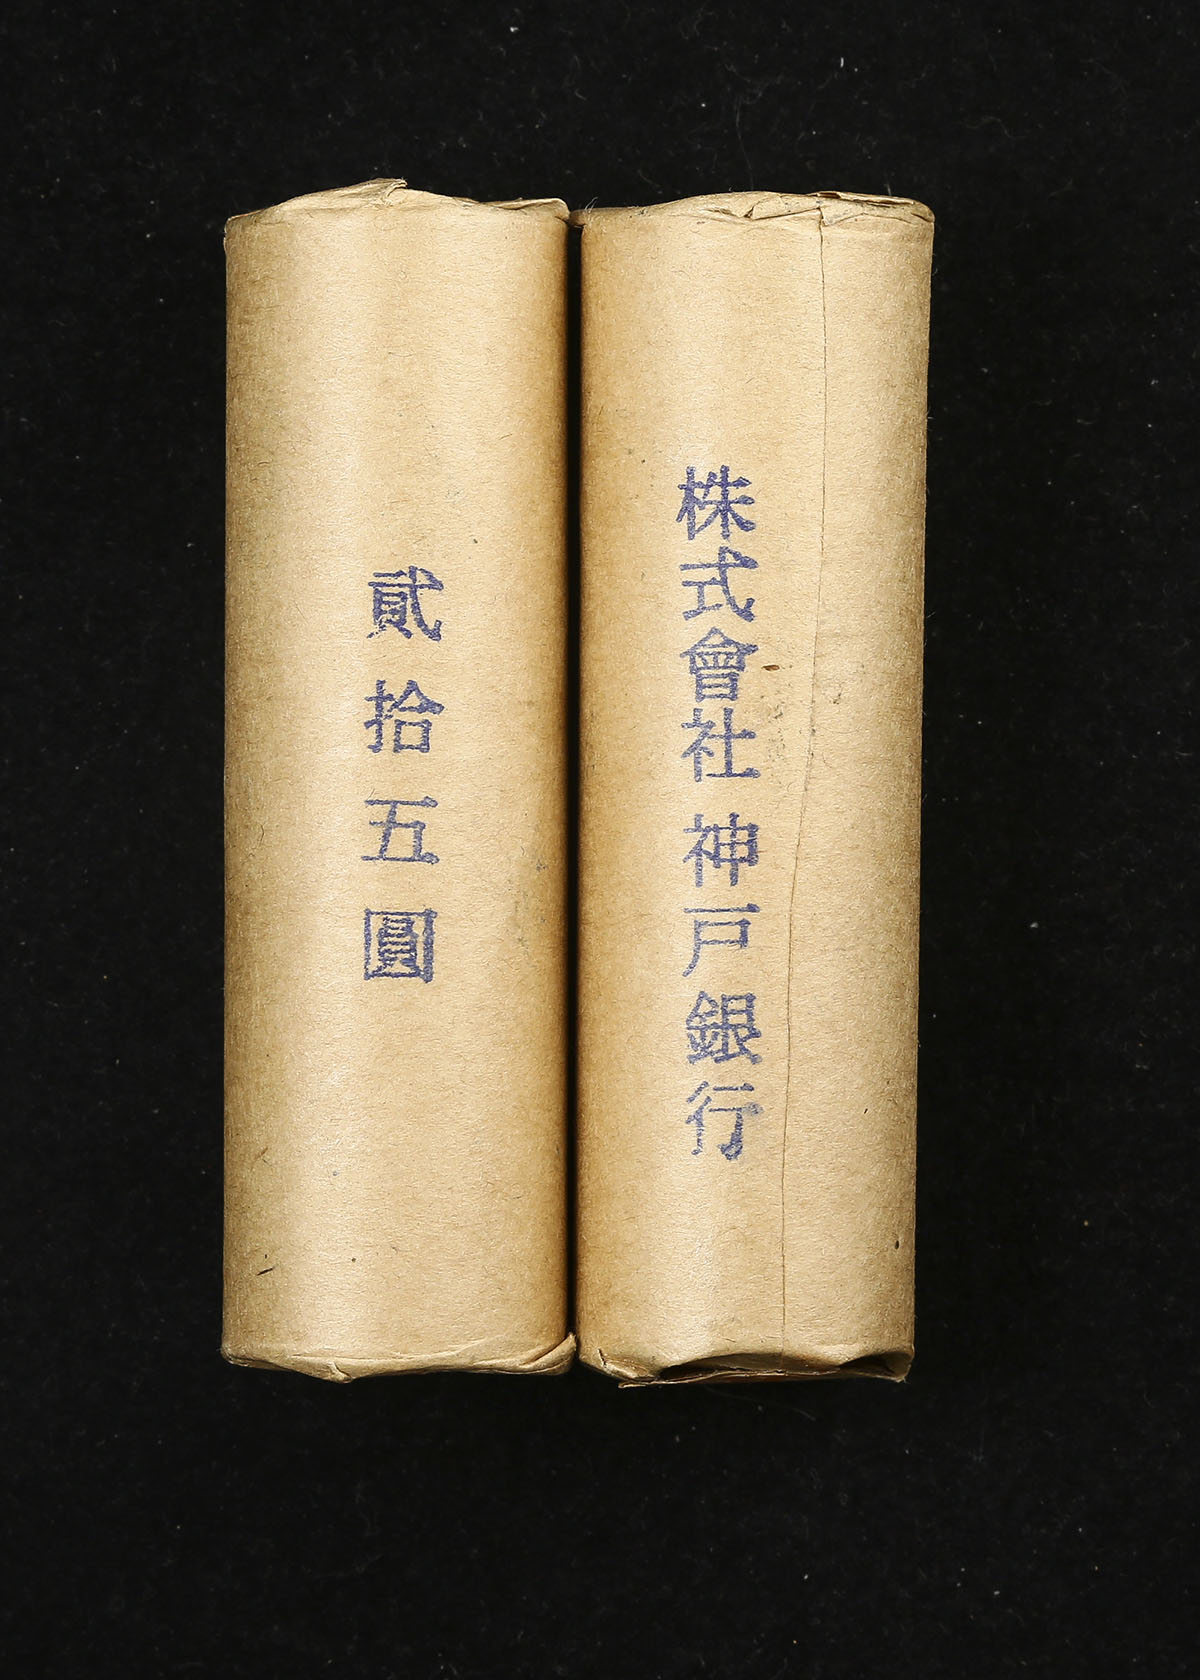 株式會社 神戸銀行
貳拾五圓